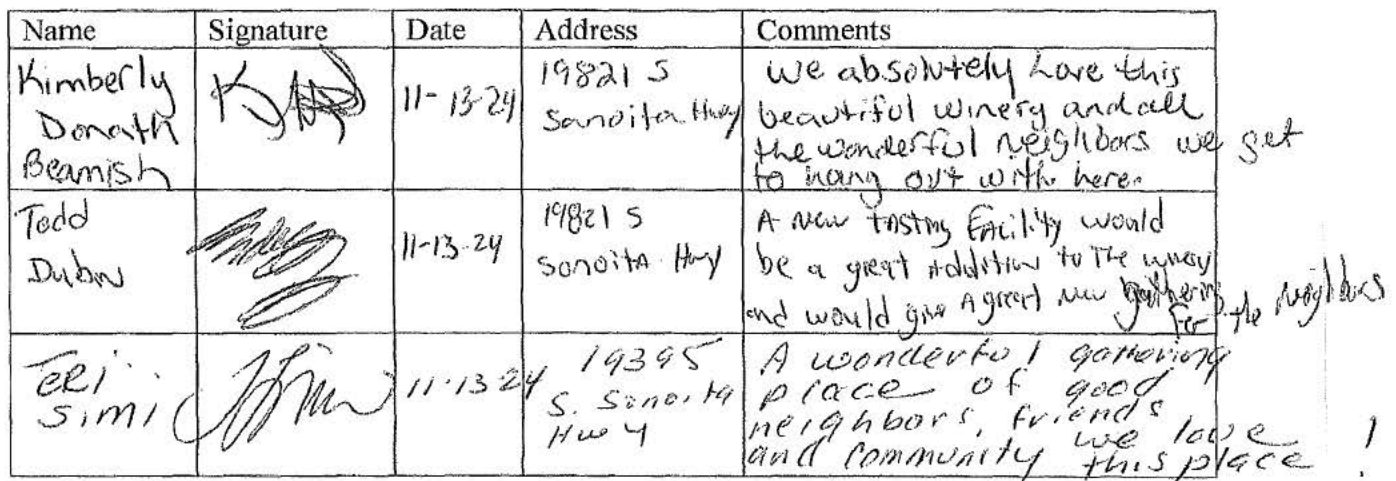 Name Signature Date Address Comments
Kimberly
Donath
Beamish
11-13-24
19821 S
Sonoita Hwy
We absolutely Love this
beautiful winery and all
the wonderful neighbors we get
to hang out with here.
Todd
Dubin
11-13-24
19821 S
Sonoita Hwy
A new tasting facility would
be a great addition to the winery
and would give A great new gathering
for the neighbors
TERI
SIMI
11-13-24
19395
S. Sonoita
Hwy
A wonderful gathering
place of good
neighbors, friends
and community we love
this place !